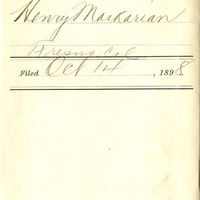 Henry Markarian
Fresno, Cal
Filed Oct 14, 1898.